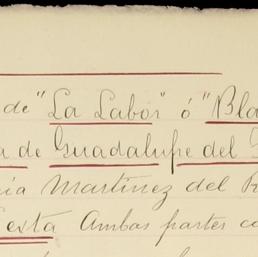 de "La Labor" ó "Bla
a de Guadalupe del
ia Martínez del R
Sexta Ambas partes co